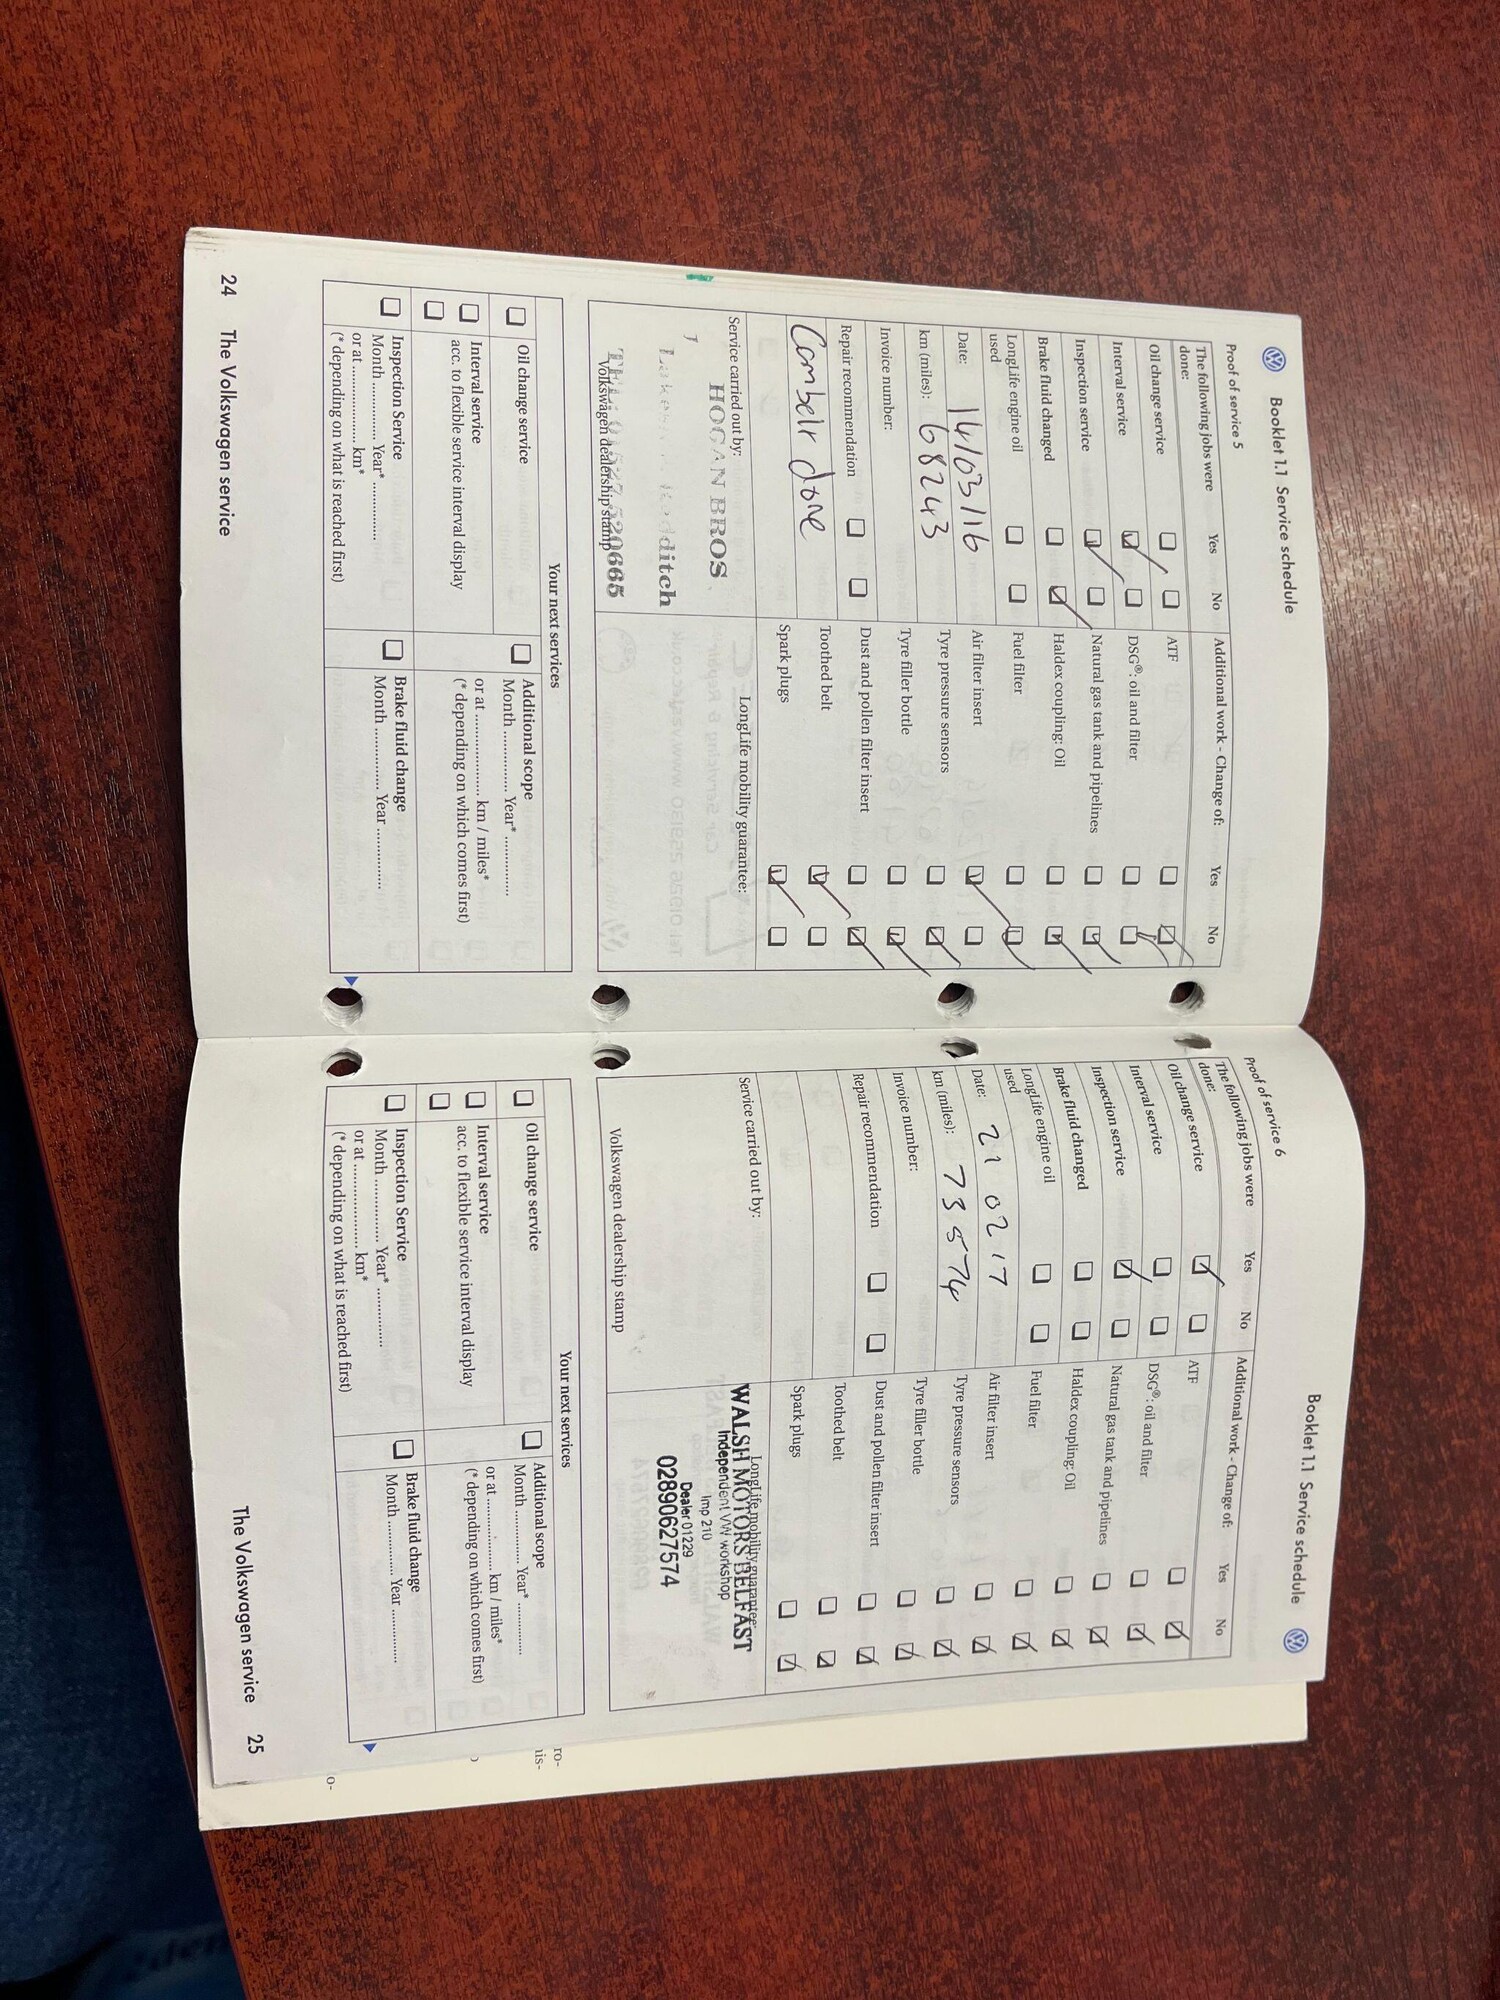 Booklet 1.1 Service schedule
Proof of service 5
The following jobs were done: Yes No
Additional work - Change of: Yes No
Oil change service
Interval service
Inspection service
Brake fluid changed
LongLife engine oil used
Date: 14/03/16
km (miles): 68243
Invoice number:
Repair recommendation
Cambelt done
ATF
DSG®: oil and filter
Natural gas tank and pipelines
Haldex coupling: Oil
Fuel filter
Air filter insert
Tyre pressure sensors
Tyre filler bottle
Dust and pollen filter insert
Toothed belt
Spark plugs
Service carried out by:
HOGAN BROS
Redditch
520665
Volkswagen dealership stamp
LongLife mobility guarantee:
Your next services
Oil change service
Interval service
acc. to flexible service interval display
Additional scope
Month ............ Year* ............
or at ............ km / miles*
(* depending on which comes first)
Inspection Service
Month ............ Year* ............
or at ............ km*
(* depending on what is reached first)
Brake fluid change
Month ............ Year ............
24 The Volkswagen service
Booklet 1.1 Service schedule
Proof of service 6
The following jobs were done: Yes No
Additional work - Change of: Yes No
Oil change service
Interval service
Inspection service
Brake fluid changed
LongLife engine oil used
Date: 21 02 17
km (miles): 73574
Invoice number:
Repair recommendation
ATF
DSG®: oil and filter
Natural gas tank and pipelines
Haldex coupling: Oil
Fuel filter
Air filter insert
Tyre pressure sensors
Tyre filler bottle
Dust and pollen filter insert
Toothed belt
Spark plugs
Service carried out by:
Volkswagen dealership stamp
LongLife mobility guarantee:
WALSH MOTORS BELFAST
Independent VW workshop
Imp 210
Dealer 01229
02890627574
Your next services
Oil change service
Interval service
acc. to flexible service interval display
Additional scope
Month ............ Year* ............
or at ............ km / miles*
(* depending on which comes first)
Inspection Service
Month ............ Year* ............
or at ............ km*
(* depending on what is reached first)
Brake fluid change
Month ............ Year ............
The Volkswagen service 25